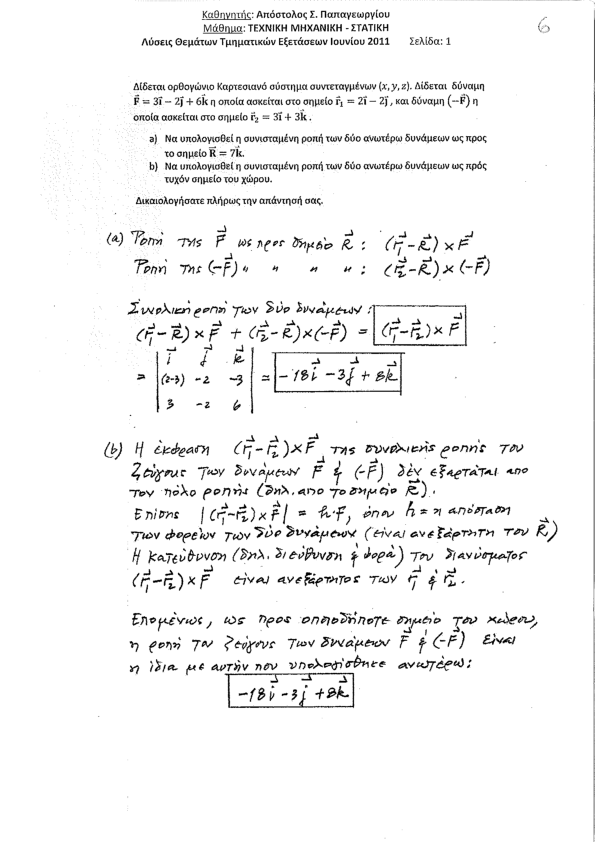 Καθηγητής: Απόστολος Σ. Παπαγεωργίου
Μάθημα: ΤΕΧΝΙΚΗ ΜΗΧΑΝΙΚΗ - ΣΤΑΤΙΚΗ
Λύσεις Θεμάτων Τμηματικών Εξετάσεων Ιουνίου 2011 Σελίδα: 1
6
Δίδεται ορθογώνιο Καρτεσιανό σύστημα συντεταγμένων (x, y, z). Δίδεται δύναμη
F⃗ = 3i⃗ − 2j⃗ + 6k⃗ η οποία ασκείται στο σημείο r⃗₁ = 2i⃗ − 2j⃗ , και δύναμη (−F⃗) η
οποία ασκείται στο σημείο r⃗₂ = 3i⃗ + 3k⃗ .
a) Να υπολογισθεί η συνισταμένη ροπή των δύο ανωτέρω δυνάμεων ως προς
το σημείο R⃗ = 7k⃗.
b) Να υπολογισθεί η συνισταμένη ροπή των δύο ανωτέρω δυνάμεων ως πρός
τυχόν σημείο του χώρου.
Δικαιολογήσατε πλήρως την απάντησή σας.
(a) Ροπή της F⃗ ως προς σημείο R⃗ : (r⃗₁−R⃗)×F⃗
Ροπή της (−F⃗) " " " " : (r⃗₂−R⃗)×(−F⃗)
Συνολική ροπή των δύο δυνάμεων :
(r⃗₁−R⃗)×F⃗ + (r⃗₂−R⃗)×(−F⃗) = (r⃗₁−r⃗₂)×F⃗
i⃗ j⃗ k⃗
= | (2-3) -2 -3 | = −18i⃗ −3j⃗ + 8k⃗
3 -2 6
(b) Η έκφραση (r⃗₁−r⃗₂)×F⃗ της συνολικής ροπής του
ζεύγους των δυνάμεων F⃗ & (−F⃗) δεν εξαρτάται απο
τον πόλο ροπής (δηλ. απο το σημείο R⃗).
Επίσης |(r⃗₁−r⃗₂)×F⃗| = h·F, όπου h = η απόσταση
των φορείων των δύο δυνάμεων (είναι ανεξάρτητη του R⃗)
Η κατεύθυνση (δηλ. διεύθυνση & φορά) του διανύσματος
(r⃗₁−r⃗₂)×F⃗ είναι ανεξάρτητος των r⃗₁ & r⃗₂.
Επομένως, ως προς οποιοδήποτε σημείο του χώρου,
η ροπή του ζεύγους των δυνάμεων F⃗ & (−F⃗) είναι
η ίδια με αυτήν που υπολογίσθηκε ανωτέρω:
−18i⃗ −3j⃗ +8k⃗